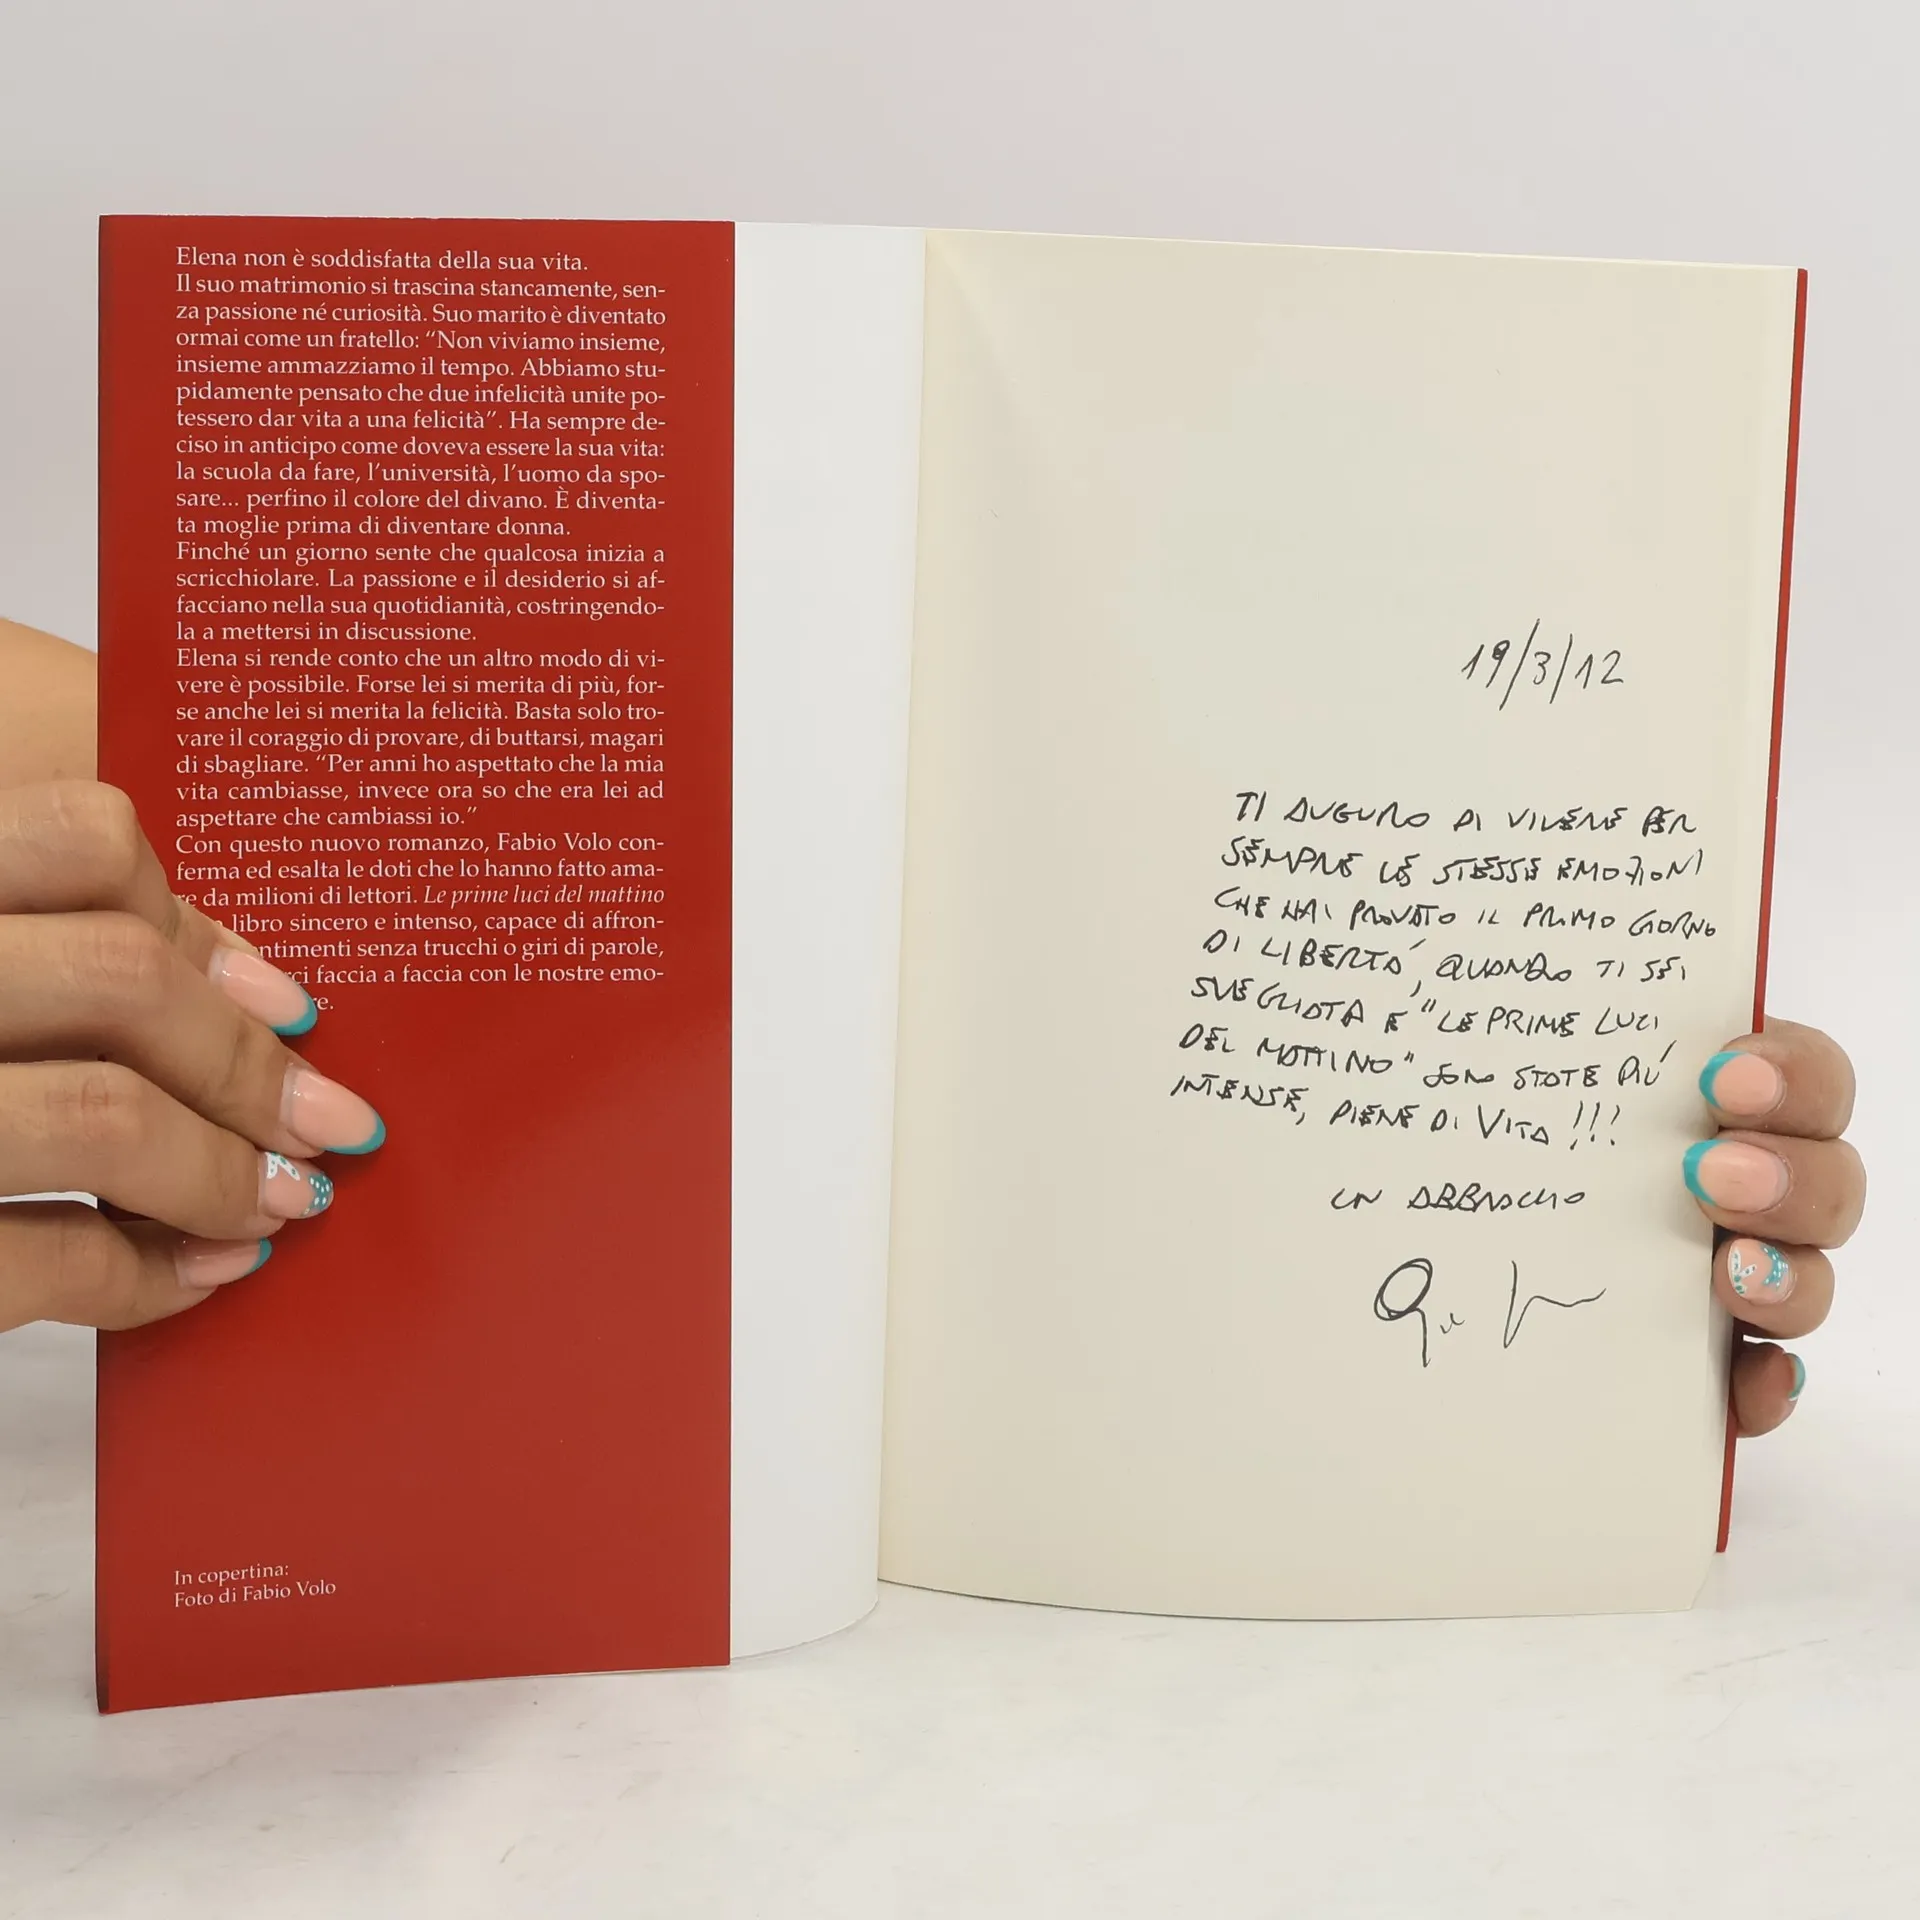 Elena non è soddisfatta della sua vita.
Il suo matrimonio si trascina stancamente, sen-
za passione né curiosità. Suo marito è diventato
ormai come un fratello: “Non viviamo insieme,
insieme ammazziamo il tempo. Abbiamo stu-
pidamente pensato che due infelicità unite po-
tessero dar vita a una felicità”. Ha sempre de-
ciso in anticipo come doveva essere la sua vita:
la scuola da fare, l’università, l’uomo da spo-
sare... perfino il colore del divano. È diventa-
ta moglie prima di diventare donna.
Finché un giorno sente che qualcosa inizia a
scricchiolare. La passione e il desiderio si af-
facciano nella sua quotidianità, costringendo-
la a mettersi in discussione.
Elena si rende conto che un altro modo di vi-
vere è possibile. Forse lei si merita di più, for-
se anche lei si merita la felicità. Basta solo tro-
vare il coraggio di provare, di buttarsi, magari
di sbagliare. “Per anni ho aspettato che la mia
vita cambiasse, invece ora so che era lei ad
aspettare che cambiassi io.”
Con questo nuovo romanzo, Fabio Volo con-
ferma ed esalta le doti che lo hanno fatto ama-
re da milioni di lettori. Le prime luci del mattino
libro sincero e intenso, capace di affron-
ntimenti senza trucchi o giri di parole,
rci faccia a faccia con le nostre emo-
re.
In copertina:
Foto di Fabio Volo
19/3/12
TI AUGURO DI VIVERE PER
SEMPRE LE STESSE EMOZIONI
CHE HAI PROVATO IL PRIMO GIORNO
DI LIBERTÀ, QUANDO TI SEI
SVEGLIATA E "LE PRIME LUCI
DEL MATTINO" SONO STATE PIÙ
INTENSE, PIENE DI VITA !!!
UN ABBRACCIO